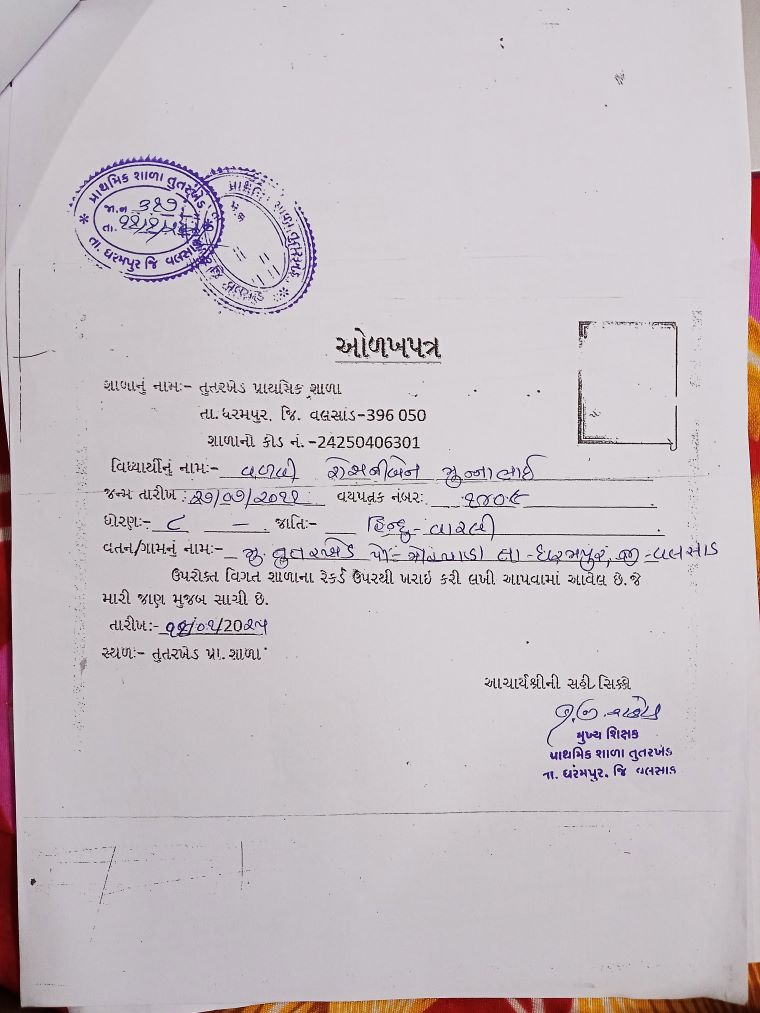 પ્રાથમિક શાળા તુતરખેડ
જા.ન
તા.
તા. ધરમપુર જિ વલસાડ
ઓળખપત્ર
શાળાનું નામઃ- તુતરખેડ પ્રાથમિક શાળા
તા. ધરમપુર, જિ. વલસાંડ-396 050
શાળાનો કોડ નં. -24250406301
વિધ્યાર્થીનું નામઃ- વળવી રોશનીબેન મુન્નાભાઈ
જન્મ તારીખ : ૨૭/૦૭/૨૦૧૧ વયપત્રક નંબરઃ ૧૪૦૯
ધોરણઃ- ૮ - જાતિઃ- હિન્દુ-વારલી
વતન/ગામનું નામઃ- મુ. તુતરખેડ પો- તા-ધરમપુર, જી-વલસાડ
ઉપરોક્ત વિગત શાળાના રેકર્ડ ઉપરથી ખરાઇ કરી લખી આપવામાં આવેલ છે. જે
મારી જાણ મુજબ સાચી છે.
તારીખઃ- /૦૧/20૨૫
સ્થળઃ- તુતરખેડ પ્રા. શાળા
આચાર્યશ્રીની સહી સિક્કો
મુખ્ય શિક્ષક
પ્રાથમિક શાળા તુતરખેડ
તા. ધરમપુર. જિ વલસાડ